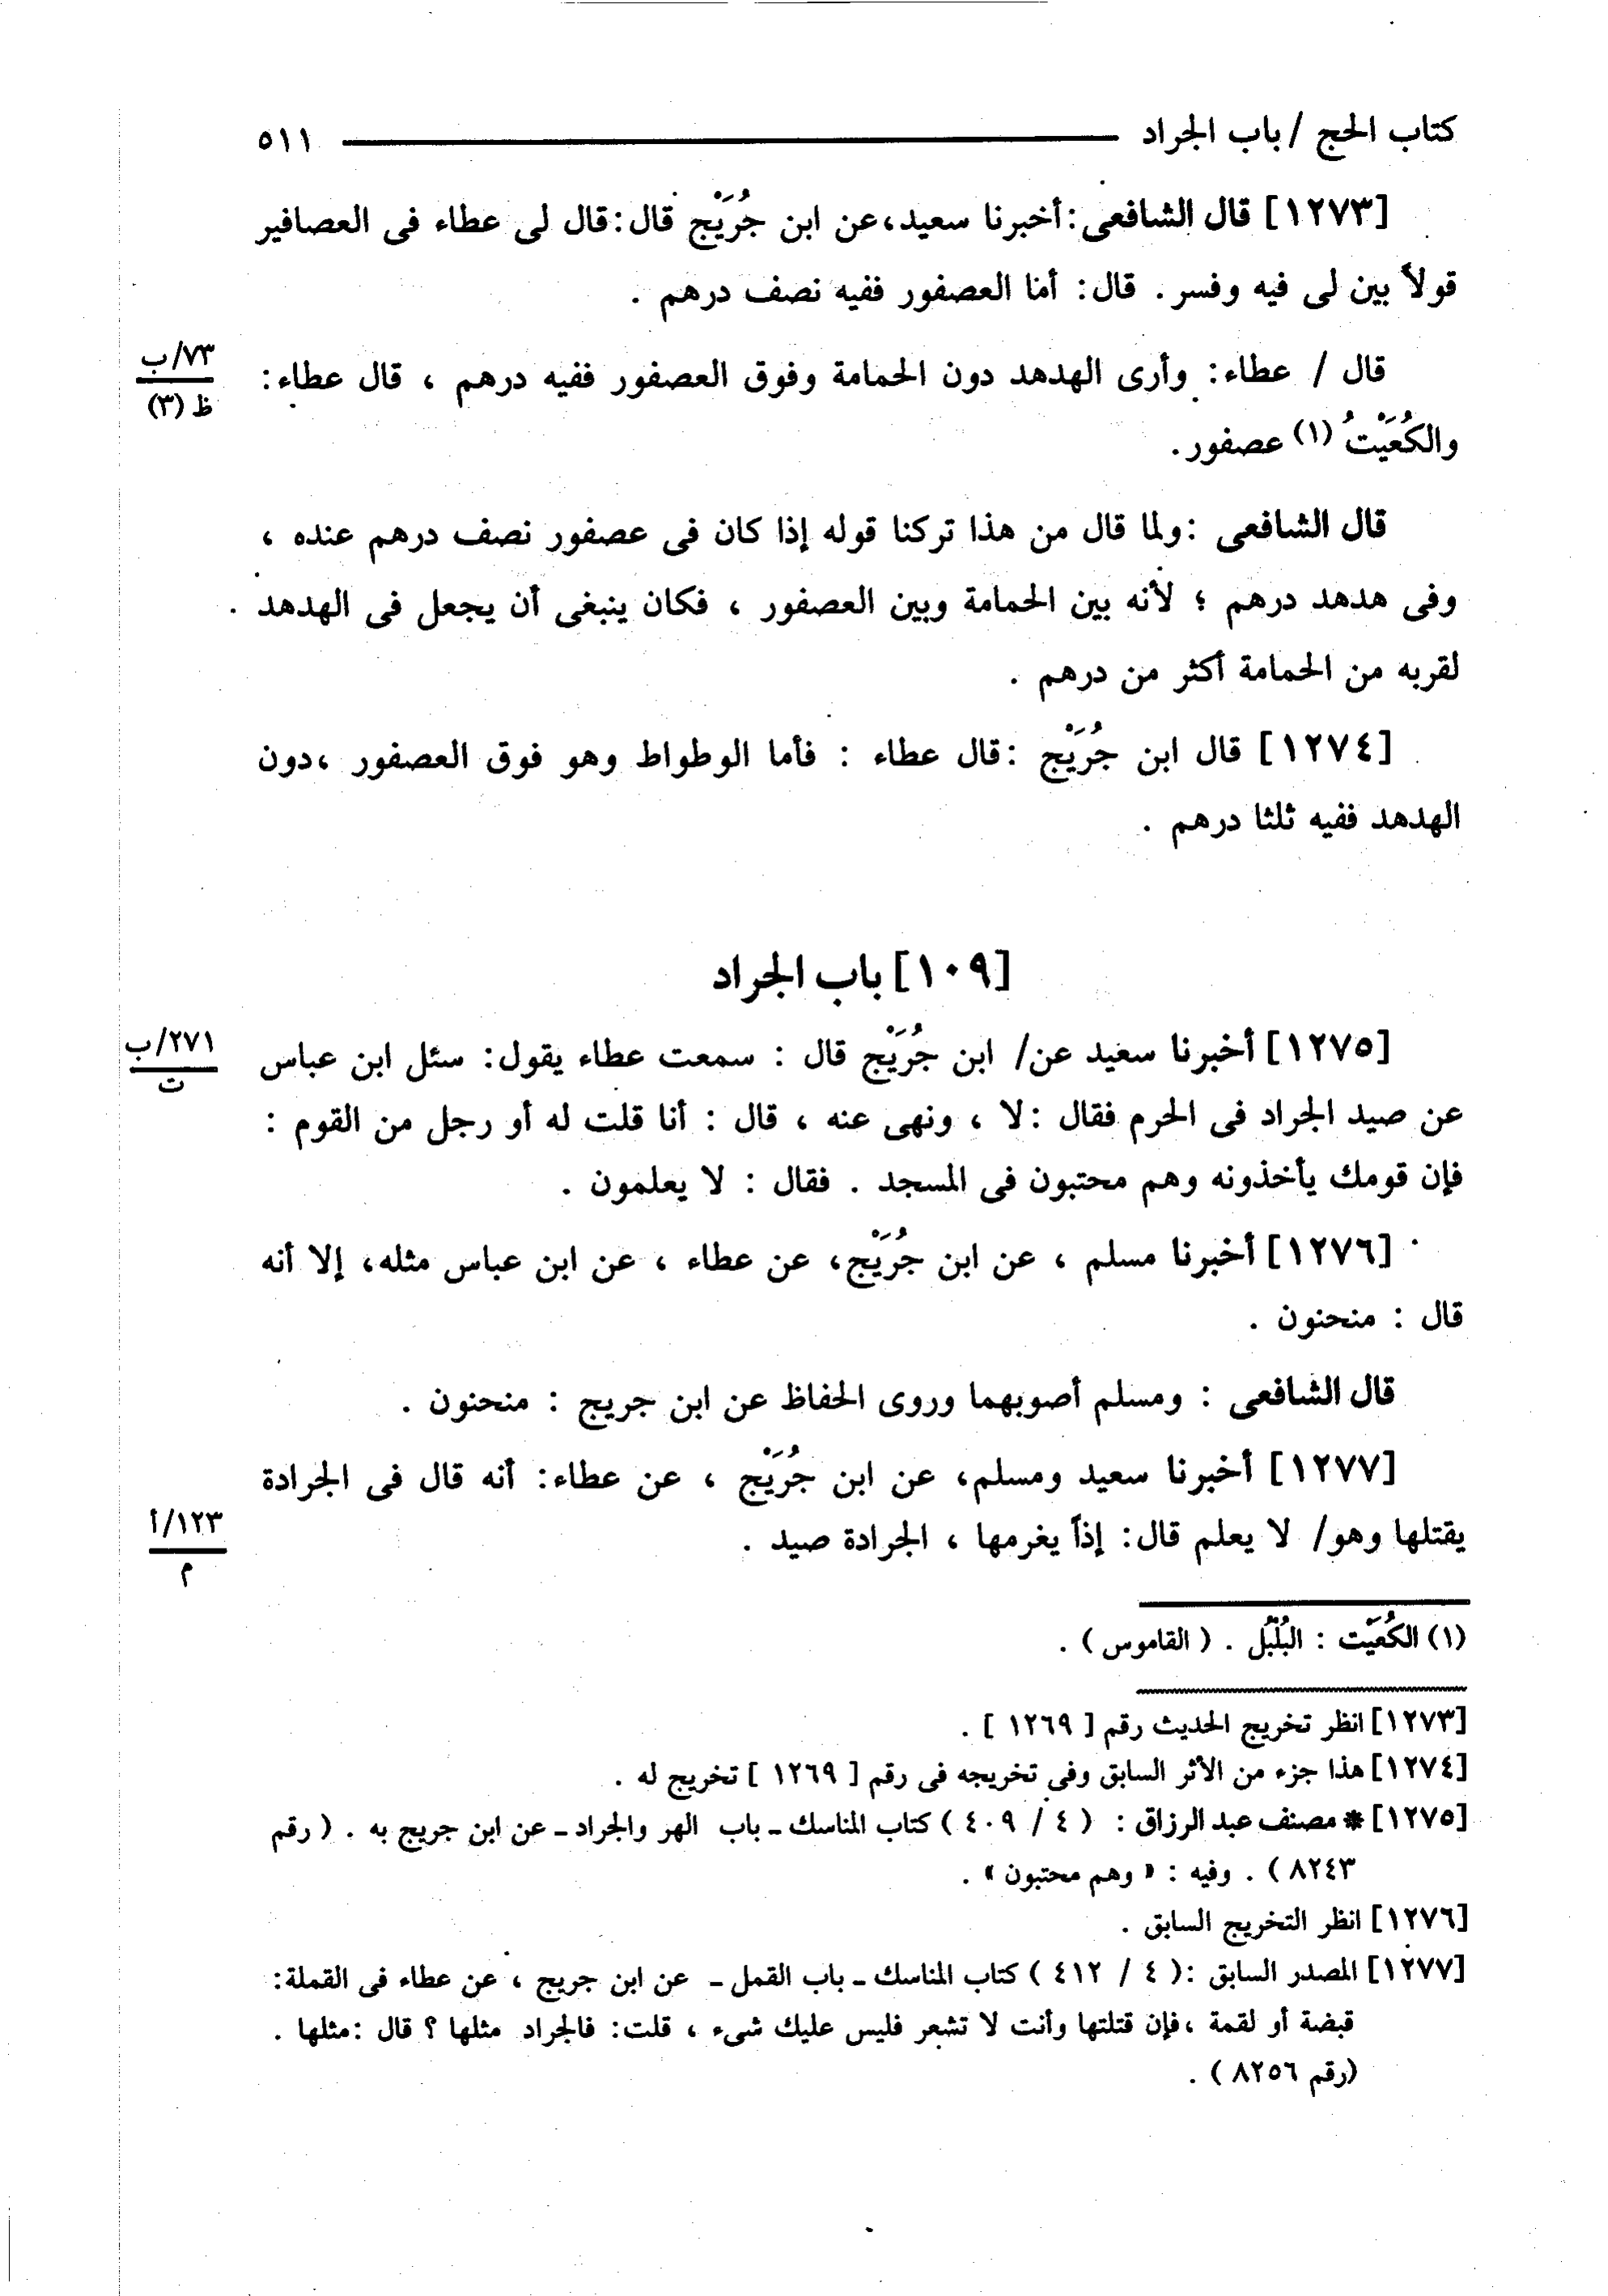 كتاب الحج / باب الجراد ٥١١
[١٢٧٣] قال الشافعى : أخبرنا سعيد ، عن ابن جُرَيْج قال : قال لى عطاء فى العصافير
قولاً بين لى فيه وفسر . قال : أما العصفور ففيه نصف درهم .
قال / عطاء : وأرى الهدهد دون الحمامة وفوق العصفور ففيه درهم ، قال عطاء :
٧٣/ب
ظ (٣)
والكُعَيْتُ (١) عصفور .
قال الشافعى : ولما قال من هذا تركنا قوله إذا كان فى عصفور نصف درهم عنده ،
وفى هدهد درهم ؛ لأنه بين الحمامة وبين العصفور ، فكان ينبغى أن يجعل فى الهدهد
لقربه من الحمامة أكثر من درهم .
[١٢٧٤] قال ابن جُرَيْج : قال عطاء : فأما الوطواط وهو فوق العصفور ، دون
الهدهد ففيه ثلثا درهم .
[١٠٩] باب الجراد
[١٢٧٥] أخبرنا سعيد عن/ ابن جُرَيْج قال : سمعت عطاء يقول : سئل ابن عباس
٢٧١/ب
ت
عن صيد الجراد فى الحرم فقال : لا ، ونهى عنه ، قال : أنا قلت له أو رجل من القوم :
فإن قومك يأخذونه وهم محتبون فى المسجد . فقال : لا يعلمون .
[١٢٧٦] أخبرنا مسلم ، عن ابن جُرَيْج، عن عطاء ، عن ابن عباس مثله، إلا أنه
قال : منحنون .
قال الشافعى : ومسلم أصوبهما وروى الحفاظ عن ابن جريج : منحنون .
[١٢٧٧] أخبرنا سعيد ومسلم، عن ابن جُرَيْج ، عن عطاء : أنه قال فى الجرادة
يقتلها وهو/ لا يعلم قال : إذاً يغرمها ، الجرادة صيد .
١٢٣/أ
م
(١) الكُعَيْت : البُلْبُل . ( القاموس ) .
[١٢٧٣] انظر تخريج الحديث رقم [ ١٢٦٩ ] .
[١٢٧٤] هذا جزء من الأثر السابق وفى تخريجه فى رقم [ ١٢٦٩ ] تخريج له .
[١٢٧٥] * مصنف عبد الرزاق : ( ٤ / ٤٠٩ ) كتاب المناسك ـ باب الهر والجراد ـ عن ابن جريج به . ( رقم
٨٢٤٣ ) . وفيه : « وهم محتبون » .
[١٢٧٦] انظر التخريج السابق .
[١٢٧٧] المصدر السابق : ( ٤ / ٤١٢ ) كتاب المناسك ـ باب القمل ـ عن ابن جريج ، عن عطاء فى القملة :
قبضة أو لقمة ، فإن قتلتها وأنت لا تشعر فليس عليك شىء ، قلت : فالجراد مثلها ؟ قال : مثلها .
(رقم ٨٢٥٦ ) .